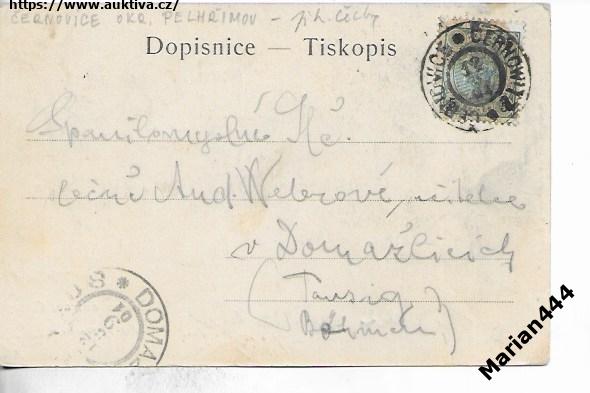 https://www.auktiva.cz/
ČERNOVICE OKR. PELHŘIMOV – již. Čechy
Dopisnice — Tiskopis
ČERNOVICE * ČERNOWITZ
Spanilomyslné
slečně And. Weberové,
v Domažlicích
(Tausig
Böhmen)
* DOMA
Marian444